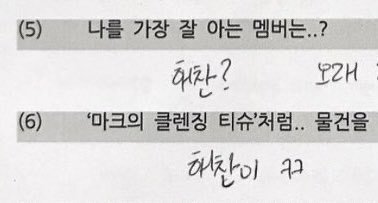 (5) 나를 가장 잘 아는 멤버는..?
해찬? 오래
(6) '마크의 클렌징 티슈'처럼.. 물건을
해찬이 ㅋㅋ